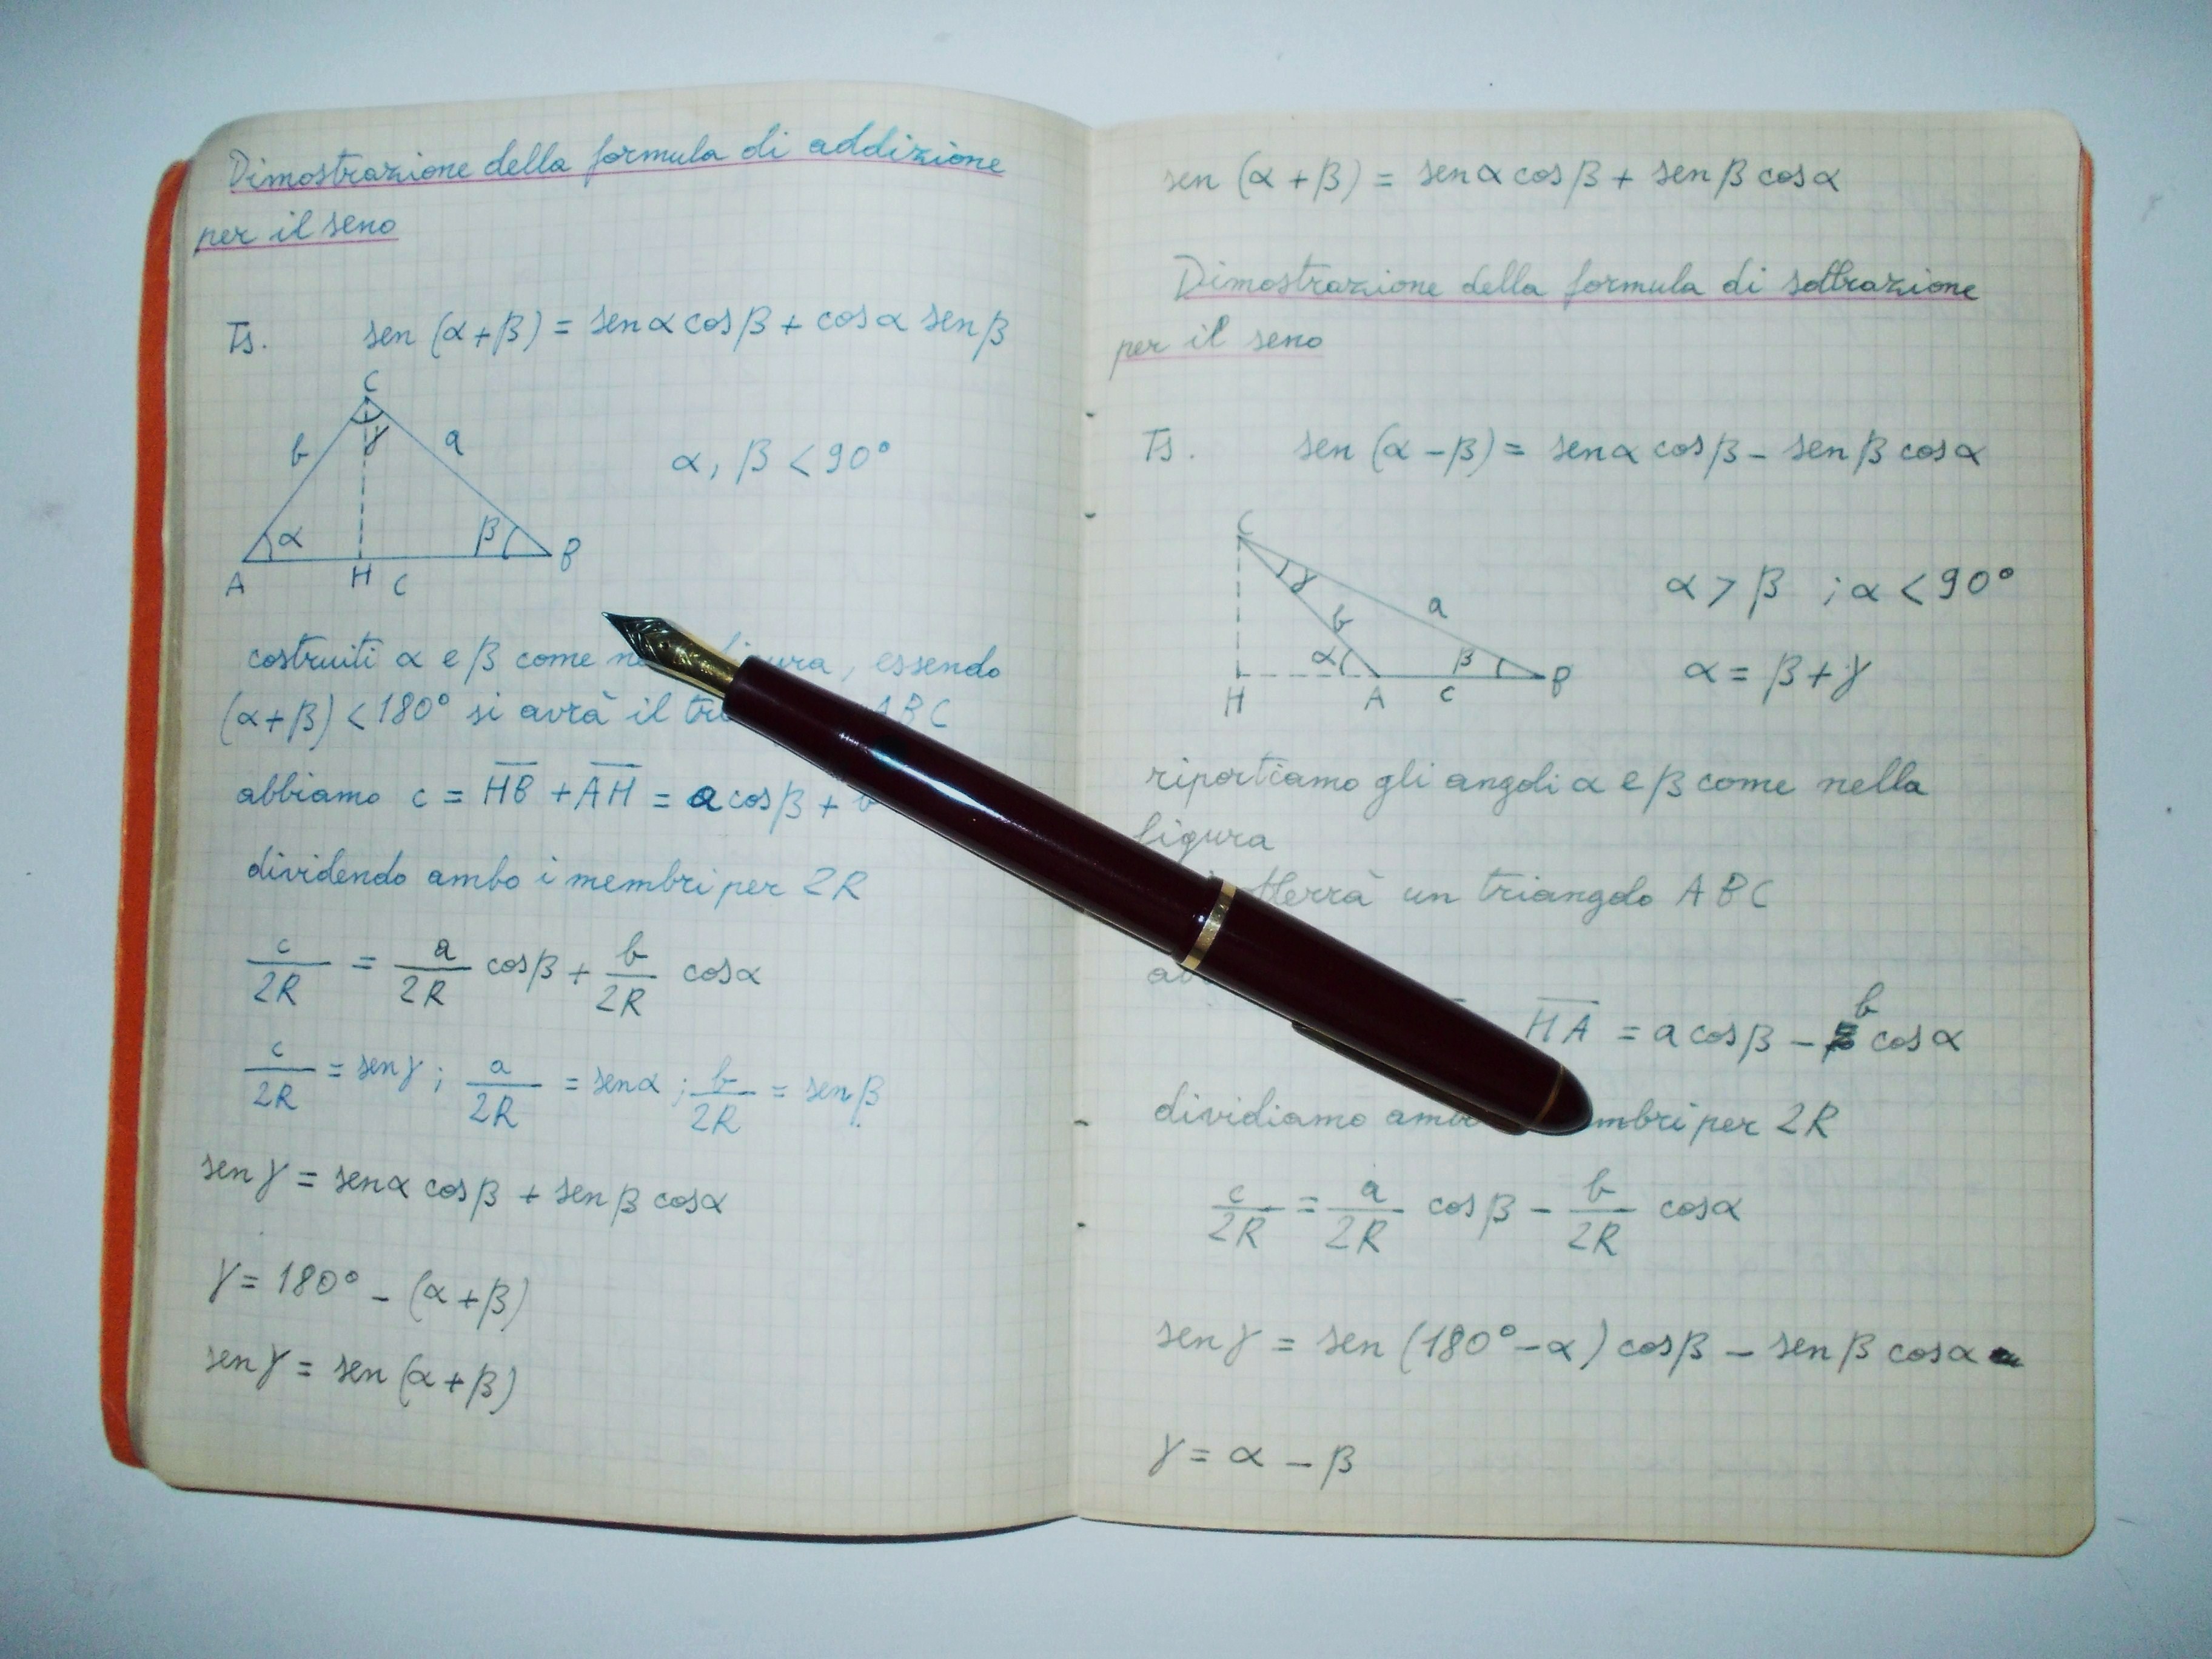 Dimostrazione della formula di addizione
per il seno
Ts. sen (α+β) = sen α cos β + cos α sen β
C
b γ a
α, β < 90°
α β
A H c B
costruiti α e β come essendo
(α+β) < 180° si avrà il ABC
abbiamo c = H̅B̅ + A̅H̅ = a cos β + b
dividendo ambo i membri per 2R
c/2R = a/2R cos β + b/2R cos α
c/2R = sen γ ; a/2R = sen α ; b/2R = sen β
sen γ = sen α cos β + sen β cos α
γ = 180° - (α+β)
sen γ = sen (α+β)
sen (α+β) = sen α cos β + sen β cos α
Dimostrazione della formula di sottrazione
per il seno
Ts. sen (α-β) = sen α cos β - sen β cos α
C
γ
b a
α > β ; α < 90°
α β
H A c B
α = β + γ
riportiamo gli angoli α e β come nella
figura
un triangolo ABC
H̅A̅ = a cos β - b cos α
dividiamo per 2R
c/2R = a/2R cos β - b/2R cos α
sen γ = sen (180° - α) cos β - sen β cos α
γ = α - β